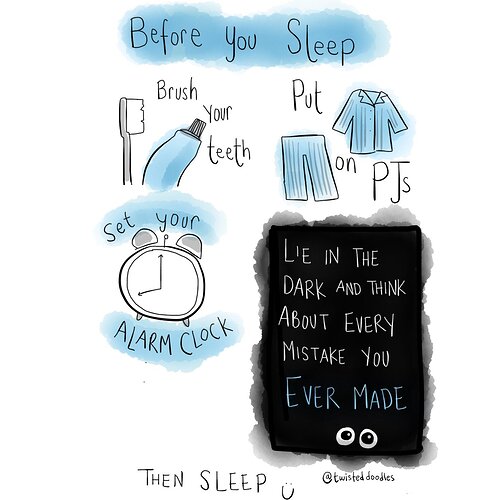 Before You Sleep
Brush
your
teeth
Put
on
PJs
Set your
ALARM CLOCK
LIE IN THE
DARK AND THINK
ABOUT EVERY
MISTAKE YOU
EVER MADE
THEN SLEEP
@twisteddoodles